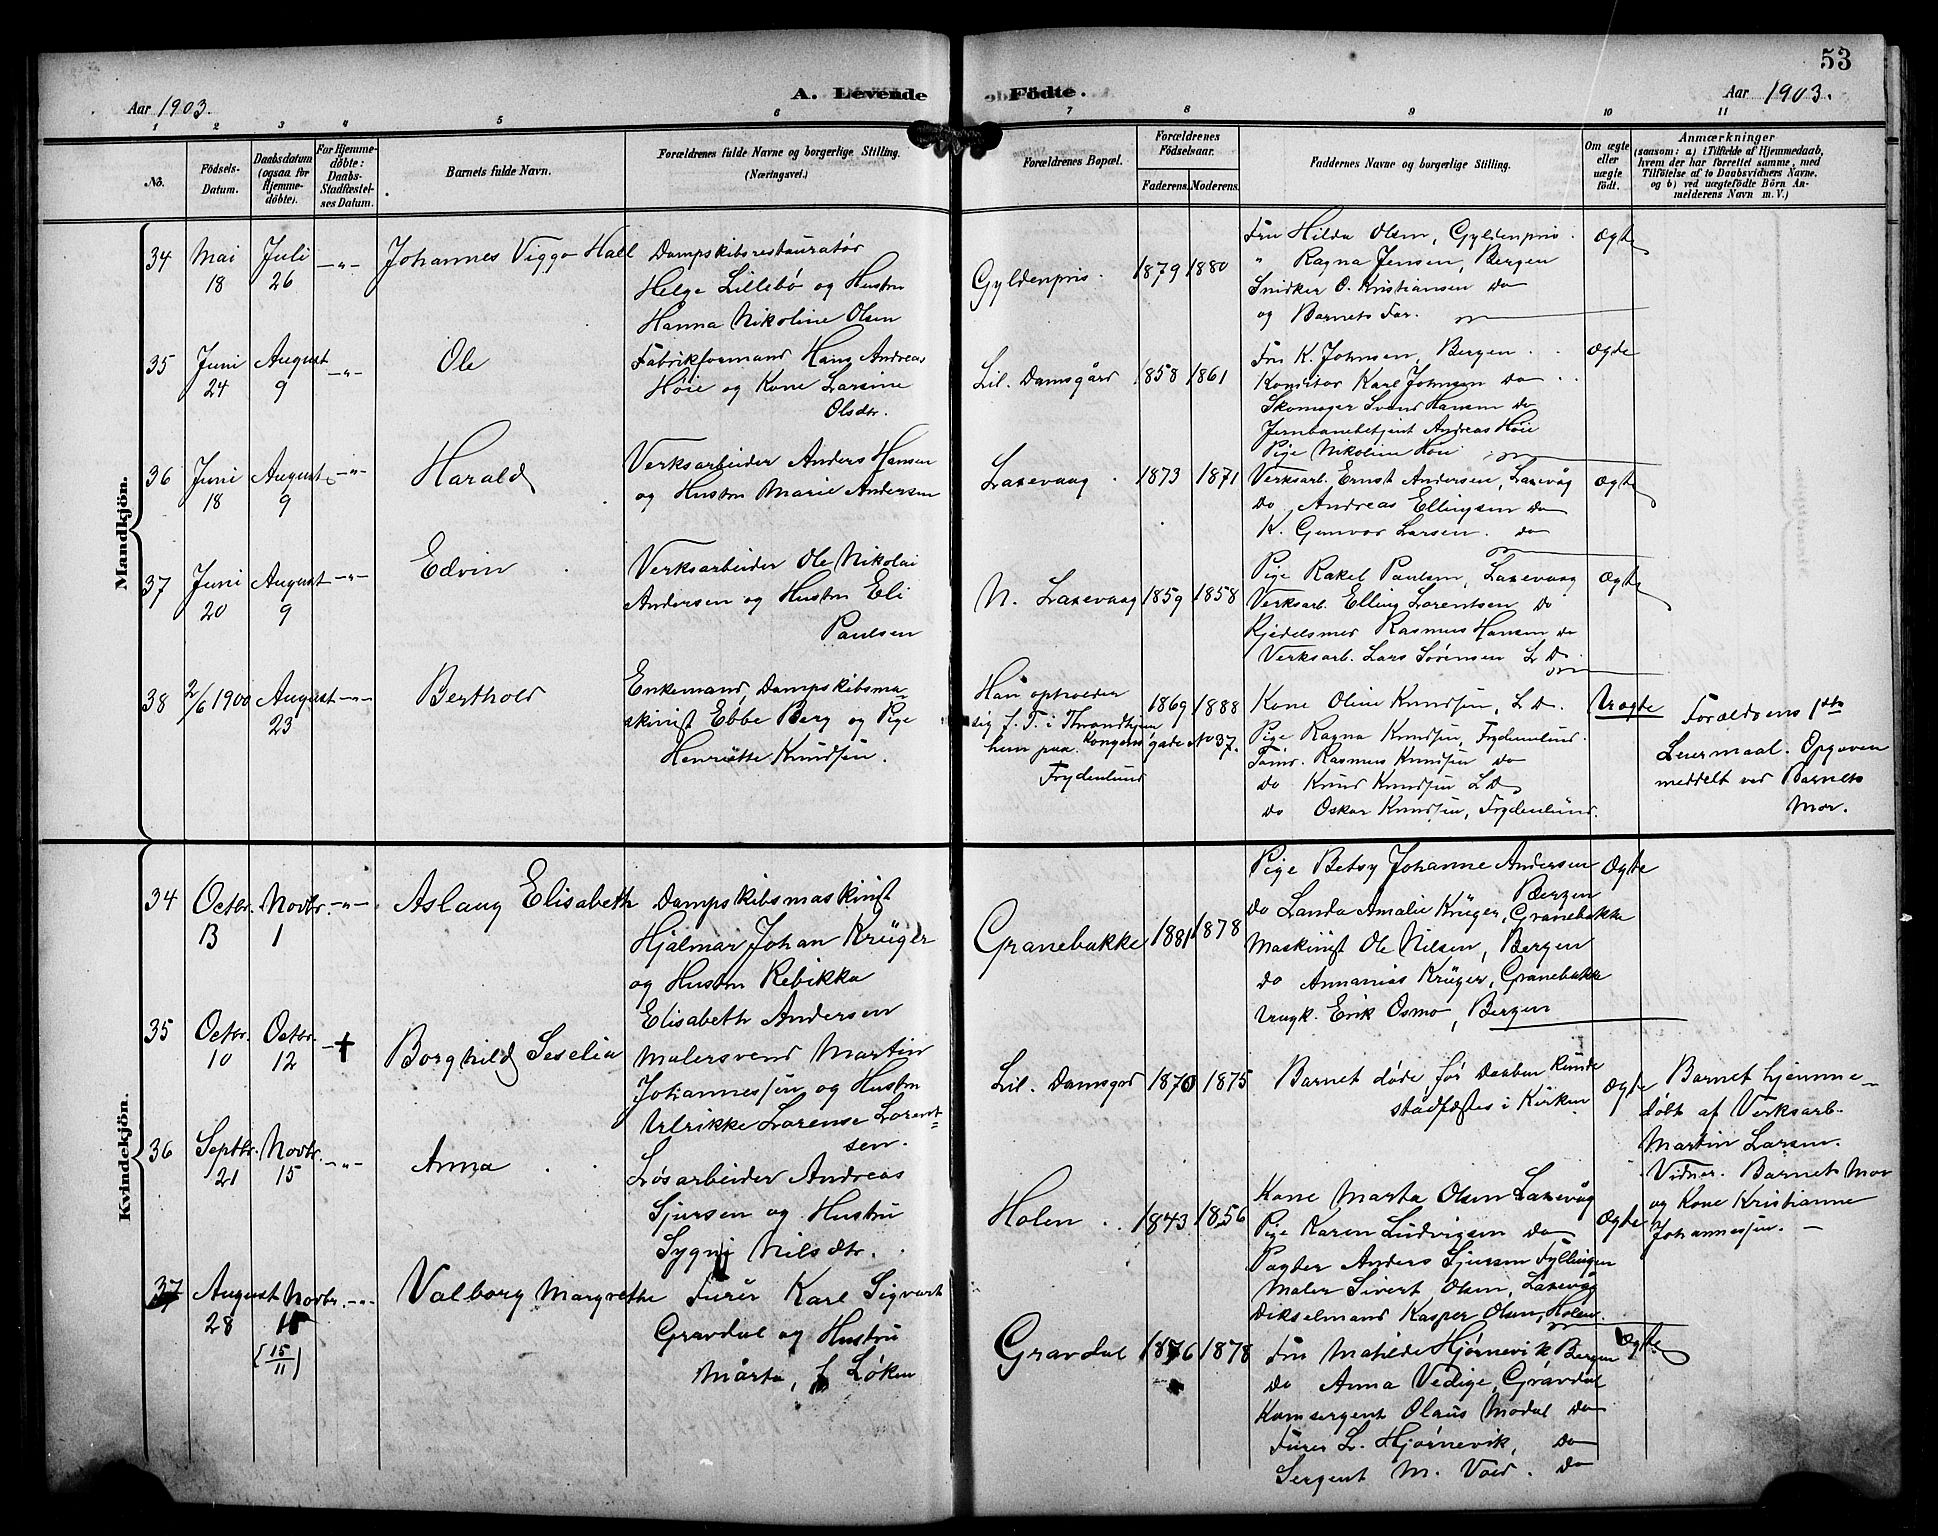 53
Aar 1903.
A. Levende Födte.
Aar 1903.
1 2 3 4 5 6 7 8 9 10 11
No.
Födsels-Datum.
Daabsdatum (ogsaa for Hjemme-döbte).
For Hjemme-döbte: Daabs-Stadfæstelses Datum.
Barnets fulde Navn.
Forældrenes fulde Navne og borgerlige Stilling. (Næringsvei.)
Forældrenes Bopæl.
Forældrenes Födselsaar.
Faderens. Moderens.
Faddernes Navne og borgerlige Stilling.
Om ægte eller uægte födt.
Anmærkninger
(saasom: a) i Tilfælde af Hjemmedaab, hvem der har forrettet samme, med Tilföielse af to Daabsvidners Navne, og b) ved uægtefödte Börn Anmelderens Navn m. V.)
Mandkjön.
34 Mai 18 Juli 26 -"- Johannes Viggo Hall
Dampskibsrestauratør
Helge Lillebø og Hustru
Hanna Nikoline Olsen
Gyldenpris. 1879 1880
Fru Hilda Olsen, Gyldenpris.
" Ragna Jensen, Bergen
Snidker O. Kristiansen do
og Barnets Far.
Ægte
35 Juni 24 August 9 -"- Ole
Fabrikformand Hans Andreas
Høie og Kone Larsine
Olsdtr.
Lil. Damsgård 1858 1861
Fru K. Johnsen, Bergen
Konditor Karl Johnsen do
Skomager Svend Hansen do
Jernbanebetjent Andreas Høie
Pige Nikoline Høie
Ægte
36 Juni 18 August 9 -"- Harald
Verksarbeider Anders Hansen
og Hustru Marie Andersen
Laxevaag 1873 1871
Verksarb. Ernst Andersen, Laxevåg
do Andreas Ellingsen do
K. Gunvor Larsen. do
Ægte
37 Juni 20 August 9 -"- Edvin
Verksarbeider Ole Nikolai
Andersen og Hustru Eli
Paulsen
N. Laxevaag 1859 1858
Pige Rakel Paulsen, Laxevaag
Verksarb. Elling Lorentsen do
Kjedelsmed Rasmus Hansen do
Verksarb. Lars Sørensen L. D.
Ægte
38 2/6 1900 August 23 -"- Berthold
Enkemand, Dampskibsma-
skinist Ebbe Berg og Pige
Henriette Knudsen.
Han opholder
sig f. T. i Throndhjem
hun paa Kongensgade No 37.
Frydenlund
1869 1888
Kone Oline Knudsen, L. D.
Pige Ragna Knudsen, Frydenlund.
Tømr. Rasmus Knudsen do
do Knud Knudsen L D
do Oskar Knudsen, Frydenlund.
Uægte
Forældrens 1ste
Leiermaal. Opgaven
meddelt ved Barnets
Mor.
Kvindekjön.
34 Octbr. 13 Novbr. 1 -"- Aslaug Elisabeth
Dampskibsmaskinist
Hjalmar Johan Krüger
og Hustru Rebikka
Elisabeth Andersen
Granebakke 1881 1878
Pige Betsy Johanne Andersen
Bergen
do Landa Amalie Krüger, Granebakke
Maskinist Ole Nilsen, Bergen
do Annanias Krüger, Granebakke
Erik Osmo, Bergen
Ægte
35 Octbr. 10 Octbr. 12 -† Borghild Seselia
Malersvend Martin
Johannessen og Hustru
Ulrikke Lorense Lorent-
sen.
Lil. Damsgrd 1870 1875
Barnet døde, før Daaben kunde
stadfæstes i Kirken
Ægte
Barnet hjemme-
døbt af Verksarb.
Martin Larsen.
Vidner. Barnets Mor
og Kone Kristianne
Johannessen. -
36 Septbr. 21 Novbr. 15 -"- Anna
Løsarbeider Andreas
Sjursen og Hustru
Sygni Nilsdtr.
Holen 1843 1856
Kone Marta Olsen Laxevåg
Pige Karen Ludvigsen do
Pagter Anders Sjursen Fyllingen
Maler Sivert Olsen, Laxevåg
Dikselmand Kasper Olsen, Holen.
Ægte
37 August 28 Novbr. 15 (15/11) -"- Valborg Margrethe
Furér Karl Sigvart
Gravdal og Hustru
Marta, f. Løken
Gravdal 1876 1878
Fru Matilde Hjørnevik Bergen
do Anna Vedige, Gravdal
Komsergent Olaus Modal do
Furer L. Hjørnevik, do
Sergent M. Vold. do
Ægte